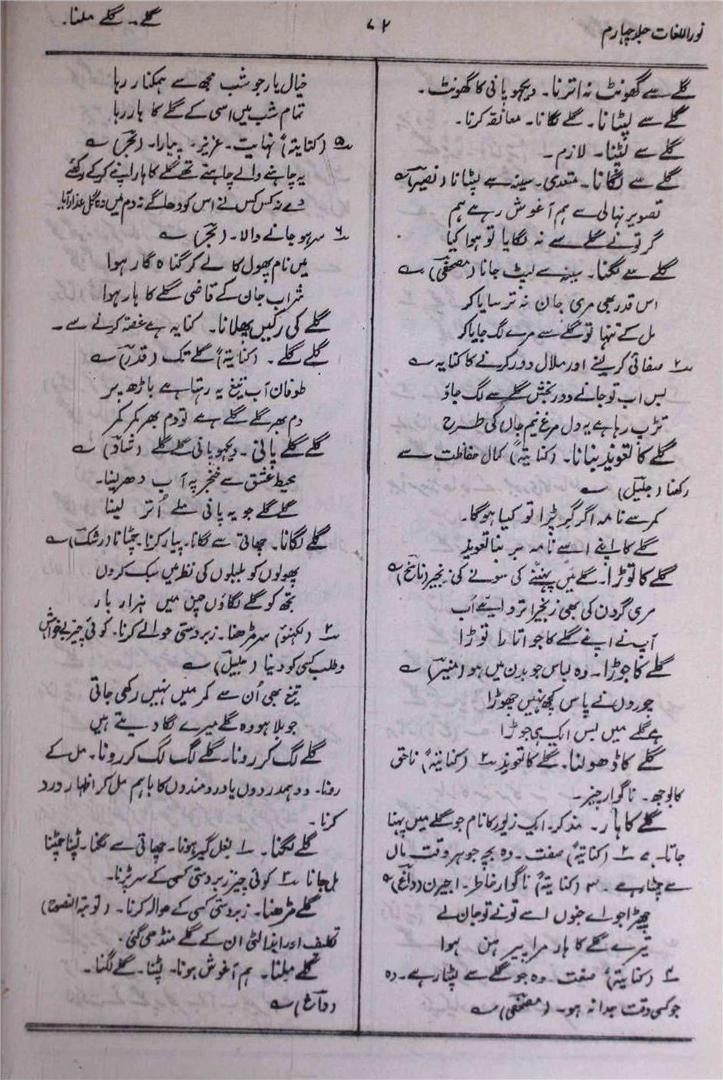 نور اللغات جلد چہارم
۷۲
گلے۔ گلے ملنا۔
گلے سے گھونٹ نہ اترنا۔ دیکھو پانی کا گھونٹ۔
گلے سے لپٹانا۔ گلے لگانا۔ معانقہ کرنا۔
گلے سے لپٹنا۔ لازم۔
گلے سے لگانا۔ متعدی۔ سینہ سے لپٹانا (نصیر) ؎
تصویر نہالی سے ہم آغوش رہے ہم
گر تونے گلے سے نہ لگایا تو ہوا کیا
گلے سے لگنا۔ سینے سے لپٹ جانا (مصحفی) ؎
اس قدر بھی مری جان نہ ترسایا کر
مل کے تنہا تو گلے سے مرے لگ جایا کر
۲؎ صفائی کرلینے اور ملال دور کرنے کا کنایہ ؎
بس اب تو جانے دو رنجش گلے سے لگ جاؤ
تڑپ رہا ہے یہ دل مرغ نیم جاں کی طرح
گلے کا تعویذ بنانا۔ (کنایتہً) کمال حفاظت سے
رکھنا (جلیل) ؎
کمر سے نامہ اگر گر پڑا تو کیا ہوگا۔
گلے کا اپنے اسے نامہ بر بنا تعویذ
گلے کا توڑا۔ گلے میں پہننے کی سونے کی زنجیر (ناسخ) ؎
مری گردن کی بھی زنجیر اتروا لیے اب
آپ نے اپنے گلے کا جو اتارا توڑا
گلے کا جوڑا۔ وہ لباس جو بدن میں ہو (منیر) ؎
چوروں نے پاس کچھ نہیں چھوڑا
ہے گلے میں بس ایک ہی جوڑا
گلے کا ڈھولنا۔ گلے کا تعویذ ۲؎ (کنایتہً) ناحق
کا بوجھ۔ ناگوار چیز۔
گلے کا ہار۔ مذکر۔ ایک زیور کا نام جو گلے میں پہنا
جاتا ہے ۲؎ (کنایتہً) صفت۔ وہ بچہ جو ہر وقت ماں
سے چمٹا رہے۔ ۳؎ (کنایتہً) ناگوار خاطر۔ اجیرن (داغ) ؎
چھڑا جو اے جنوں اسے تونے تو جان لے
تیرے گلے کا ہار مرا پیرہن ہوا
۴؎ (کنایتہً) صفت۔ وہ جو گلے سے لپٹا رہے۔ وہ
جو کسی وقت جدا نہ ہو۔ (مصحفی) ؎
خیال یار جو شب مجھ سے ہمکنار رہا
تمام شب میں اسی کے گلے کا ہار رہا
۵؎ (کنایتہً) نہایت۔ عزیز۔ پیارا۔ (بحر) ؎
یہ چاہنے والے چاہتے تھے گلے کا ہار اپنے کرکے رکھتے
۶؎ سر ہو جانے والا۔ (بحر) ؎
میں نام پھول کا لے کر گناہ گار ہوا
شراب جان کے قاضی گلے کا ہار ہوا
گلے کی رگیں پھلانا۔ کنایہ ہے غصہ کرنے سے۔
گلے گلے۔ (کنایتہً) گلے تک (قدر) ؎
طوفان آب تیغ یہ رہتا ہے باڑھ پر
دم بھر گلے گلے ہے تو دم بھر کمر کمر
گلے گلے پانی۔ دیکھو پانی گلے گلے (شاد) ؎
محیط عشق سے خنجر پہ آب دھر لینا۔
گلے گلے جو یہ پانی ملے اُتر لینا
گلے لگانا۔ چھاتی سے لگانا۔ پیار کرنا۔ چمٹانا (رشک) ؎
پھولوں کو بلبلوں کی نظر میں سبک کروں
تجھ کو گلے لگاؤں چمن میں ہزار بار
۲؎ (لکھنؤ) سر مڑھنا۔ زبردستی حوالے کرنا۔ کوئی چیز بے خواہش
وطلب کسی کو دینا (جلیل) ؎
تیغ بھی اُن سے کمر میں نہیں رکھی جاتی
جو بلا ہو وہ گلے میرے لگا دیتے ہیں
گلے لگ کر رونا۔ گلے لگ لگ کر رونا۔ مل کے
رونا۔ دو ہمدردوں یا دردمندوں کا باہم مل کر اظہار درد
کرنا۔
گلے لگنا۔ ۱؎ بغل گیر ہونا۔ چھاتی سے لگنا۔ لپٹنا چمٹنا
مل جانا ۲؎ کوئی چیز زبردستی کسی کے سر پڑنا۔
گلے مڑھنا۔ زبردستی کسی کے حوالہ کرنا۔ (توبتہ النصوح)
تکلیف اور ایذا الٹی ان کے گلے منڈھی گئی۔
گلے ملنا۔ ہم آغوش ہونا۔ لپٹنا۔ گلے لگنا۔
(داغ) ؎